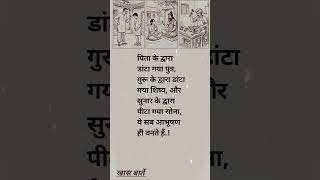 पिता के द्वारा
डांटा गया पुत्र,
गुरु के द्वारा डांटा
गया शिष्य, और
सुनार के द्वारा
पीटा गया सोना,
ये सब आभूषण
ही बनते हैं.!
खास बातें